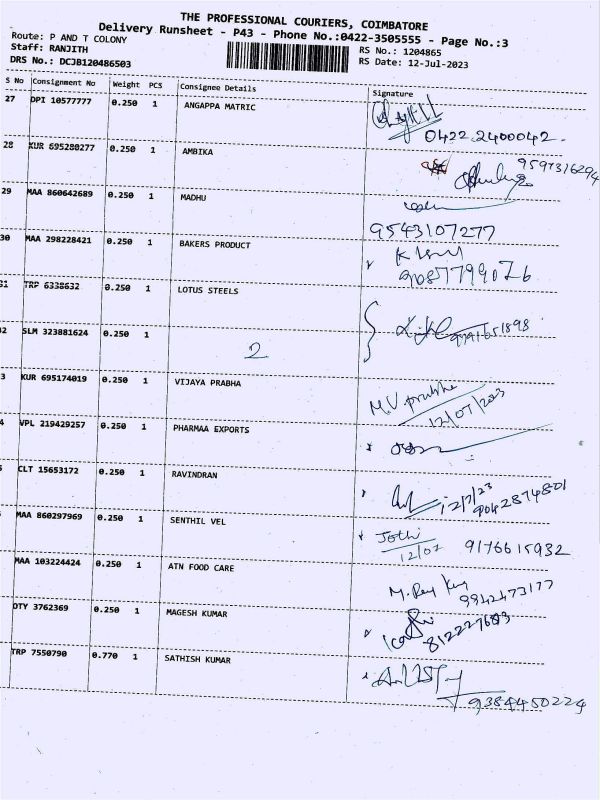 THE PROFESSIONAL COURIERS, COIMBATORE
Delivery Runsheet - P43 - Phone No.:0422-3505555 - Page No.:3
Route: P AND T COLONY
Staff: RANJITH
DRS No.: DCJB120486503
RS No.: 1204865
RS Date: 12-Jul-2023
S No Consignment No Weight PCS Consignee Details Signature
27 DPI 10577777 0.250 1 ANGAPPA MATRIC
0422 2400042.
28 KUR 695280277 0.250 1 AMBIKA
9597316294
29 MAA 860642689 0.250 1 MADHU
9543107277
30 MAA 298228421 0.250 1 BAKERS PRODUCT
9087799076
31 TRP 6338632 0.250 1 LOTUS STEELS
32 SLM 323881624 0.250 1
2
3 KUR 695174019 0.250 1 VIJAYA PRABHA M.V prabha
12/07/203
4 VPL 219429257 0.250 1 PHARMAA EXPORTS
CLT 15653172 0.250 1 RAVINDRAN 12/7/23
9042874801
MAA 860297969 0.250 1 SENTHIL VEL Jothi
12/07 9176615932
MAA 103224424 0.250 1 ATN FOOD CARE
9842473177
DTY 3762369 0.250 1 MAGESH KUMAR
TRP 7550790 0.770 1 SATHISH KUMAR
9384450224